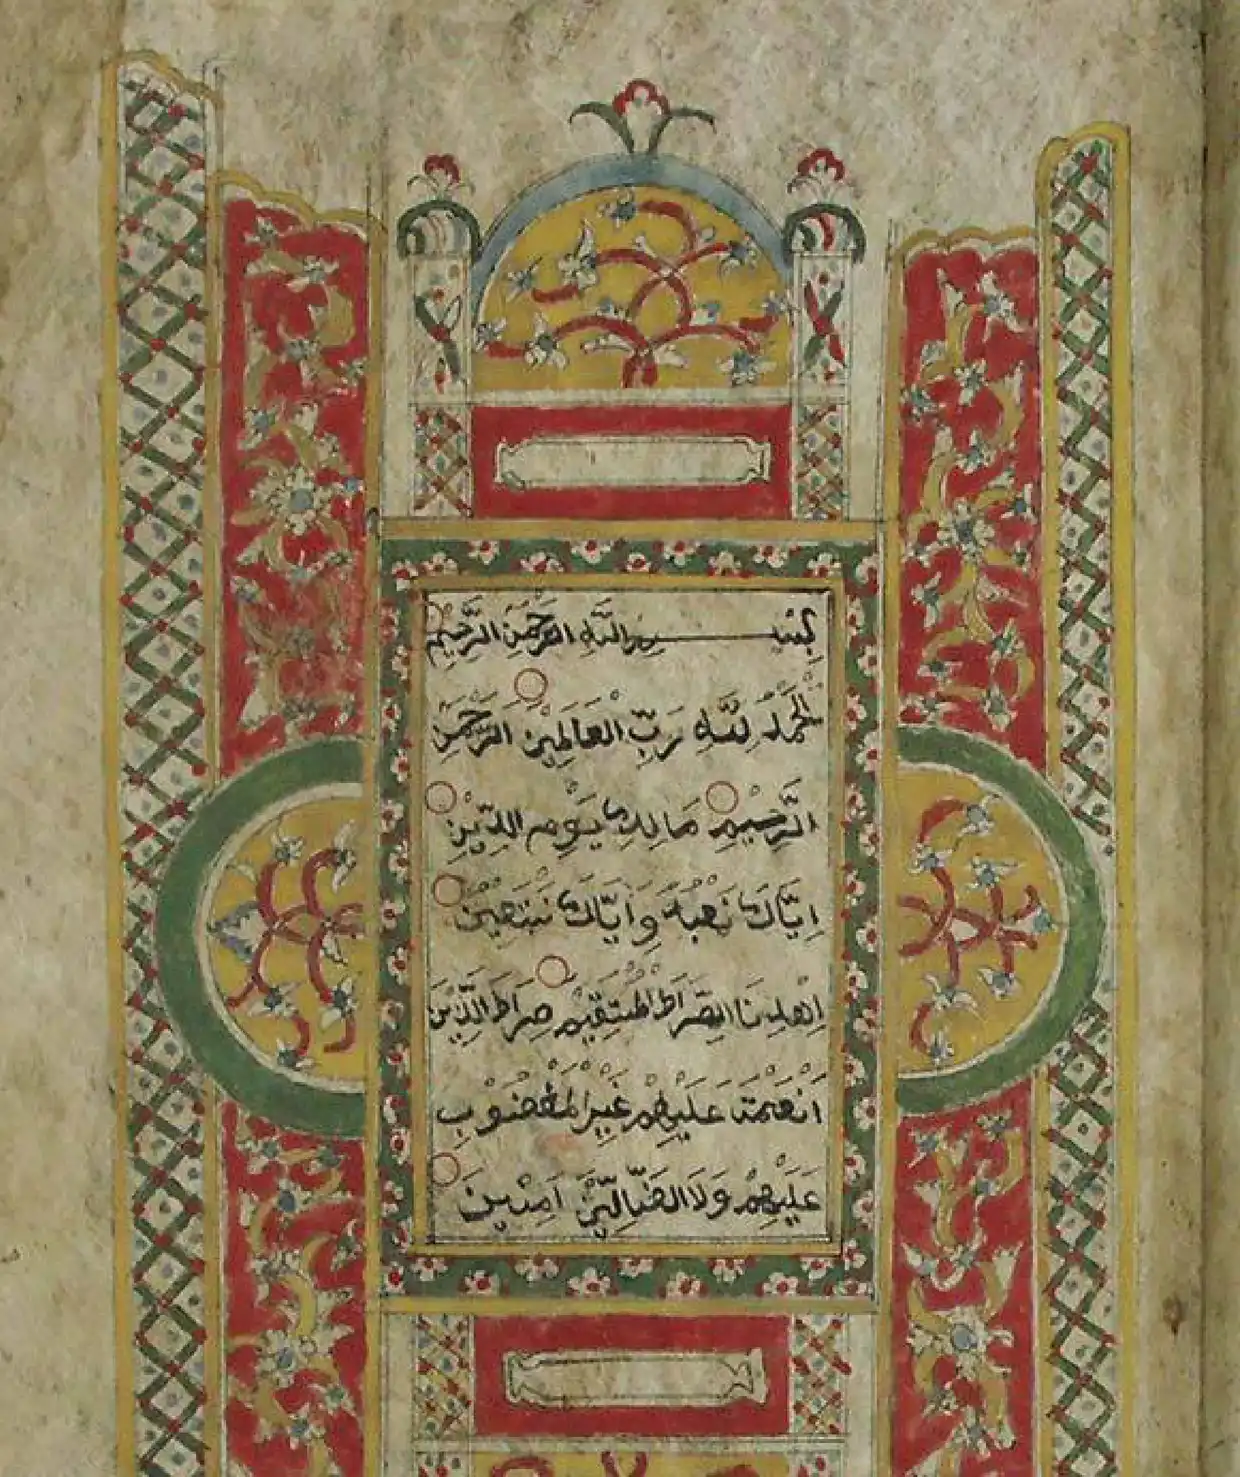 بِسْمِ اللَّهِ الرَّحْمَنِ الرَّحِيْمِ
اَلْحَمْدُ لِلَّهِ رَبِّ الْعَالَمِيْنَ الرَّحْمَنِ
الرَّحِيْمِ مَالِكِ يَوْمِ الدِّيْنِ
اِيَّاكَ نَعْبُدُ وَاِيَّاكَ نَسْتَعِيْنُ
اِهْدِنَا الصِّرَاطَ الْمُسْتَقِيْمَ صِرَاطَ الَّذِيْنَ
اَنْعَمْتَ عَلَيْهِمْ غَيْرِ الْمَغْضُوْبِ
عَلَيْهِمْ وَلَا الضَّالِّيْنَ اَمِيْنَ